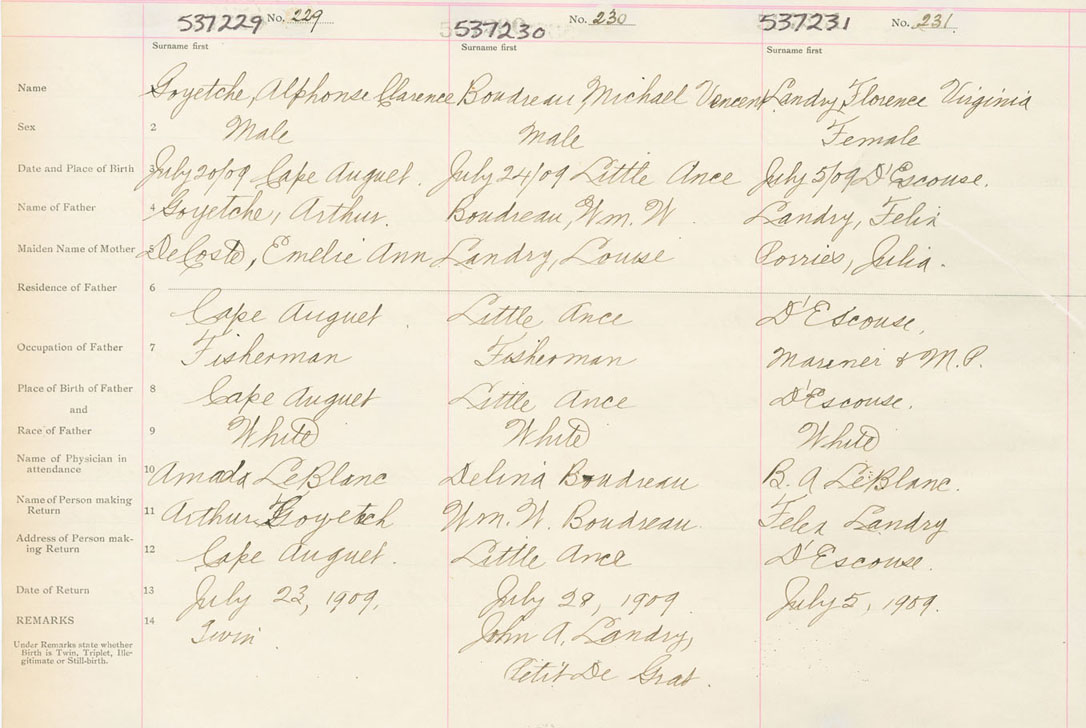 537229 No. 229 537230 No. 230 537231 No. 231.
Surname first Surname first Surname first
Name Goyetche, Alphonse Clarence Boudreau Michael Vencent Landry Florence Virginia
Sex 2 Male Male Female
Date and Place of Birth 3 July 20/09 Cape Auguet. July 24/09 Little Ance July 5/09 D'Escouse.
Name of Father 4 Goyetche, Arthur. Boudreau, Wm. W. Landry, Felix
Maiden Name of Mother 5 DeCoste, Emelie Ann Landry, Louise Porrier, Julia.
Residence of Father 6
Cape Auguet. Little Ance D'Escouse.
Occupation of Father 7 Fisherman Fisherman Mariner & M.P.
Place of Birth of Father 8 Cape Auguet Little Ance D'Escouse.
and
Race of Father 9 White White White
Name of Physician in
attendance 10 Amada LeBlanc Delina Boudreau B. A LeBlanc.
Name of Person making
Return 11 Arthur Goyetch Wm. W. Boudreau. Felix Landry
Address of Person mak-
ing Return 12 Cape Auguet. Little Ance D'Escouse.
Date of Return 13 July 23, 1909. July 28, 1909. July 5, 1909.
REMARKS 14 Twin John A. Landry,
Under Remarks state whether
Birth is Twin, Triplet, Ille-
gitimate or Still-birth.
Petit De Grat.